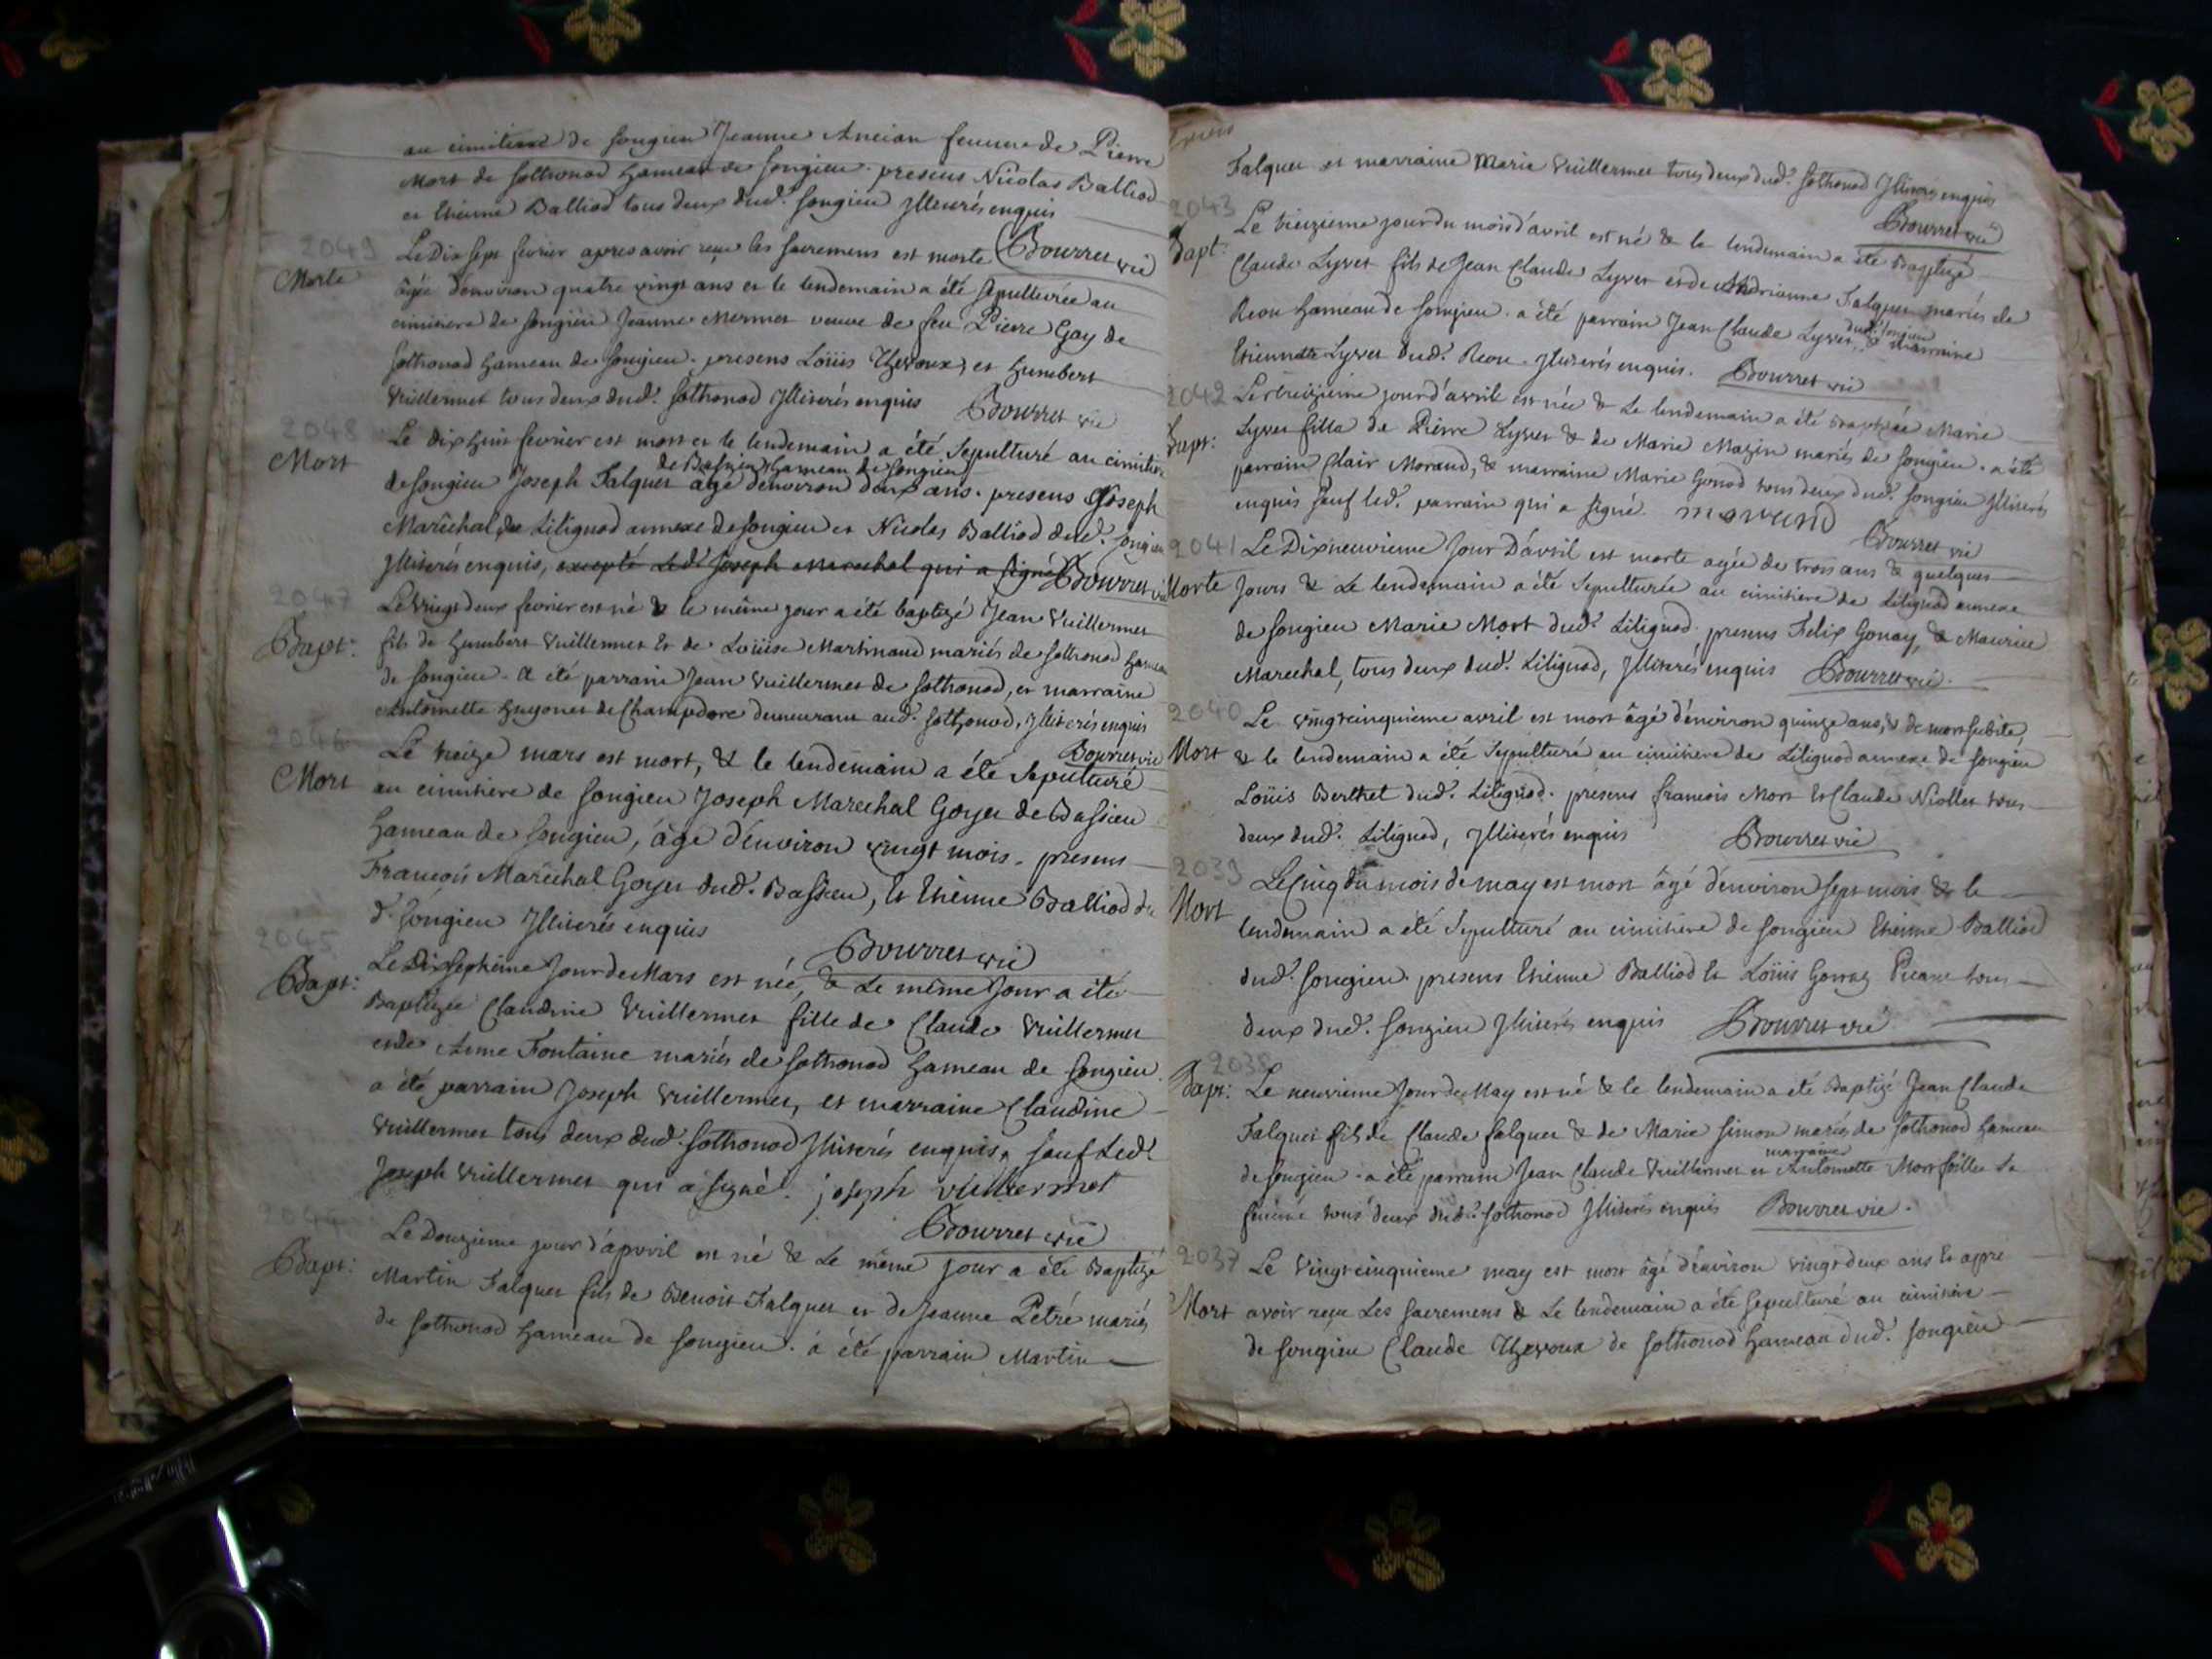 au cimitiere de songieu Jeanne Ancian femme de Pierre
Mort de sothonod hameau de songieu. presens Nicolas Balliod
et Etienne Balliod tous deux dud.t songieu Illiterés enquis
Bourret vic
2049
Morte
Le Dix sept fevrier apres avoir reçu les sacremens est morte
âgée d'environ quatre vingt ans et le lendemain a été sepulturée au
cimitiere de songieu Jeanne Mermet veuve de feu Pierre Gay de
sothonod hameau de songieu. presens Loüis Thevoux, et humbert
Vuillermet tous deux dud.t sothonod Illiterés enquis
Bourret vic
2048
Mort
Le dix huit fevrier est mort et le lendemain a été sepulturé au cimitiere
de Bassieu hameau de songieu
de songieu Joseph Falquet âgé d'environ deux ans. presens Joseph
Maréchal de Lilignod annexe de songieu et Nicolas Balliod dud.t songieu
Illiterés enquis, excepté led.t Joseph Marechal qui a signé Bourret vic
2047
Bapt:
Le vingt deux fevrier est né & le même jour a été baptizé Jean Vuillermet
fils de humbert Vuillermet et de Loüise Martinaud mariés de sothonod hameau
de songieu. a été parrain Jean Vuillermet de sothonod, et marraine
Antoinette hugonet de Champdore demeurant aud.t sothonod, Illiterés enquis
Bourret vic
2046
Mort
Le treize mars est mort, & le lendemain a été sepulturé
au cimitiere de songieu Joseph Marechal Goyet de Bassieu
hameau de songieu, âgé d'environ vingt mois. presens
François Maréchal Goyet dud.t Bassieu, et Etienne Balliod du
d.t songieu Illiterés enquis
Bourret vic
2045
Bapt:
Le Dix septieme Jour de Mars est née, & Le même Jour a été
Baptizée Claudine Vuillermet fille de Claude Vuillermet
et de Anne Fontaine mariés de sothonod hameau de songieu
a été parrain Joseph Vuillermet, et marraine Claudine
Vuillermet tous deux dud.t sothonod Illiterés enquis, sauf Led.t
Joseph Vuillermet qui a signé. joseph vuillermet
Bourret vic
2044
Bapt:
Le Douzieme jour d'apvril est né & Le même jour a été Baptizé
Martin Falquet fils de Benoit Falquet et de Jeanne Pétré mariés
de sothonod hameau de songieu. à été parrain Martin
Falquet et marraine Marie Vuillermet tous deux dud.t sothonod Illiterés enquis
Bourret vic
2043
Bapt:
Le treizieme jour du mois d'avril est né & le lendemain a été Baptizé
Claude Lyvet fils de Jean Claude Lyvet et de Andrianne Falquet mariés de
Reou hameau de songieu. a été parrain Jean Claude Lyvet dud.t songieu & marraine
Etiennette Lyvet dud.t Reou. Illiterés enquis. Bourret vic
2042
Bapt:
Le treizieme jour d'avril est née & Le lendemain a été Baptizée Marie
Lyvet fille de Pierre Lyvet & de Marie Mazin mariés de songieu. a été
parrain Clair Morand, & marraine Marie Gonod tous deux dud.t songieu Illiterés
enquis sauf led.t parrain qui a signé. morand
Bourret vic
2041
Morte
Le Dixneuvieme Jour D'avril est morte agée de trois ans & quelques
Jours & Le lendemain a été sepulturée au cimitiere de Lilignod annexe
de songieu Marie Mort dud.t Lilignod. presens Felix Gonay, & Maurice
Marechal, tous deux dud.t Lilignod, Illiterés enquis Bourret vic.
2040
Mort
Le vingtcinquieme avril est mort âgé d'environ quinze ans, & de mort subite,
& le lendemain a été sepulturé au cimitiere de Lilignod annexe de songieu
Loüis Berthet dud.t Lilignod. presens françois Mort et Claude Niollet tous
deux dud.t Lilignod, Illiterés enquis Bourret vic
2039
Mort
Le Cinq du mois de may est mort âgé d'environ sept mois & le
lendemain a été sepulturé au cimitiere de songieu Etienne Balliod
dud.t songieu. presens Etienne Balliod et Loüis tous
deux dud.t songieu Illiterés enquis Bourret vic
2038
Bapt:
Le neuvieme Jour de May est né & le lendemain a été Baptizé Jean Claude
Falquet fils de Claude falquet & de Marie simon mariés de sothonod hameau
de songieu. a été parrain Jean Claude Vuillermet et marraine Antoinette Mort
femme tous deux dud.t sothonod Illiterés enquis Bourret vic.
2037
Mort
Le Vingtcinquieme may est mort âgé d'environ vingt deux ans et apre
avoir reçu Les sacremens & Le lendemain a été sepulturé au cimitiere
de songieu Claude Thevoux de sothonod hameau dud.t songieu